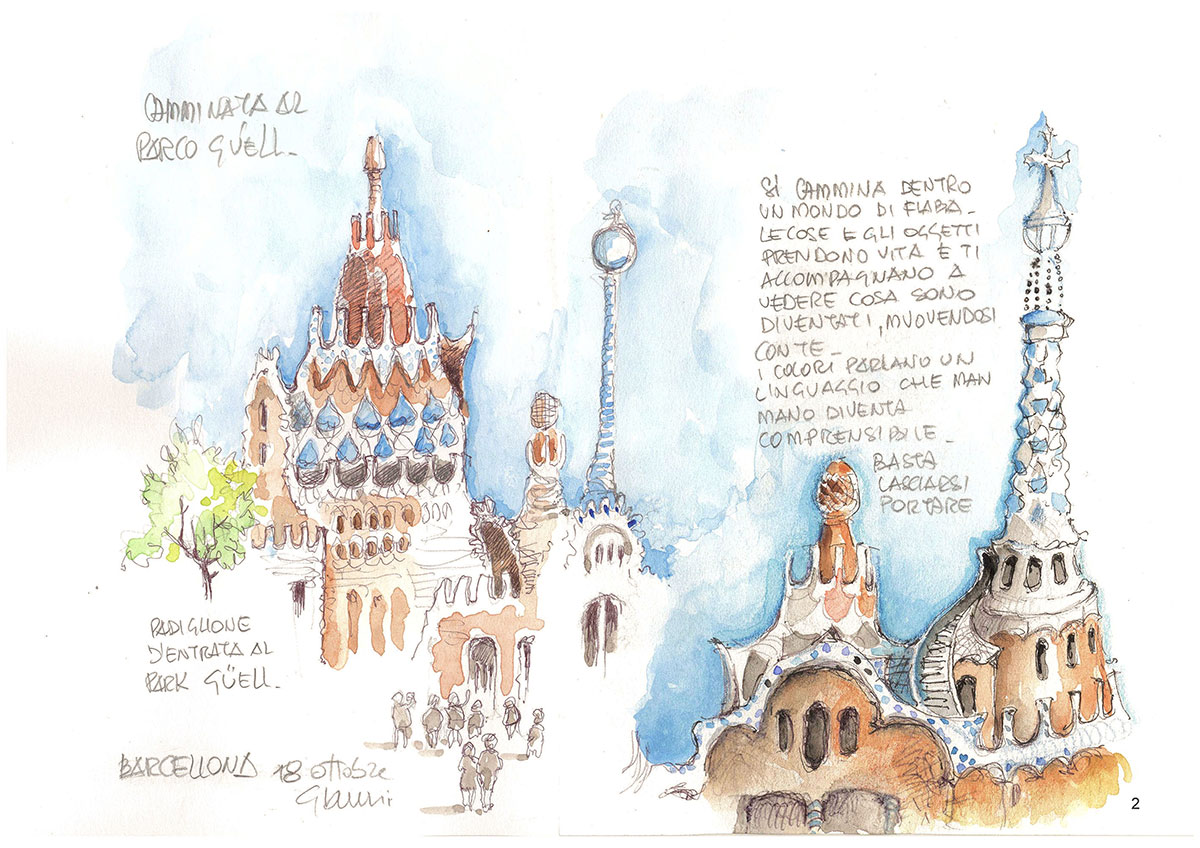 CAMMINATA AL
PARCO GÜELL_
PADIGLIONE
D'ENTRATA AL
PARK GÜELL_
BARCELLONA 18 ottobre
Gianni
SI CAMMINA DENTRO
UN MONDO DI FIABA_
LE COSE E GLI OGGETTI
PRENDONO VITA E TI
ACCOMPAGNANO A
VEDERE COSA SONO
DIVENTATI, MUOVENDOSI
CON TE_
I COLORI PARLANO UN
LINGUAGGIO CHE MAN
MANO DIVENTA
COMPRENSIBILE_
BASTA
LASCIARSI
PORTARE
2